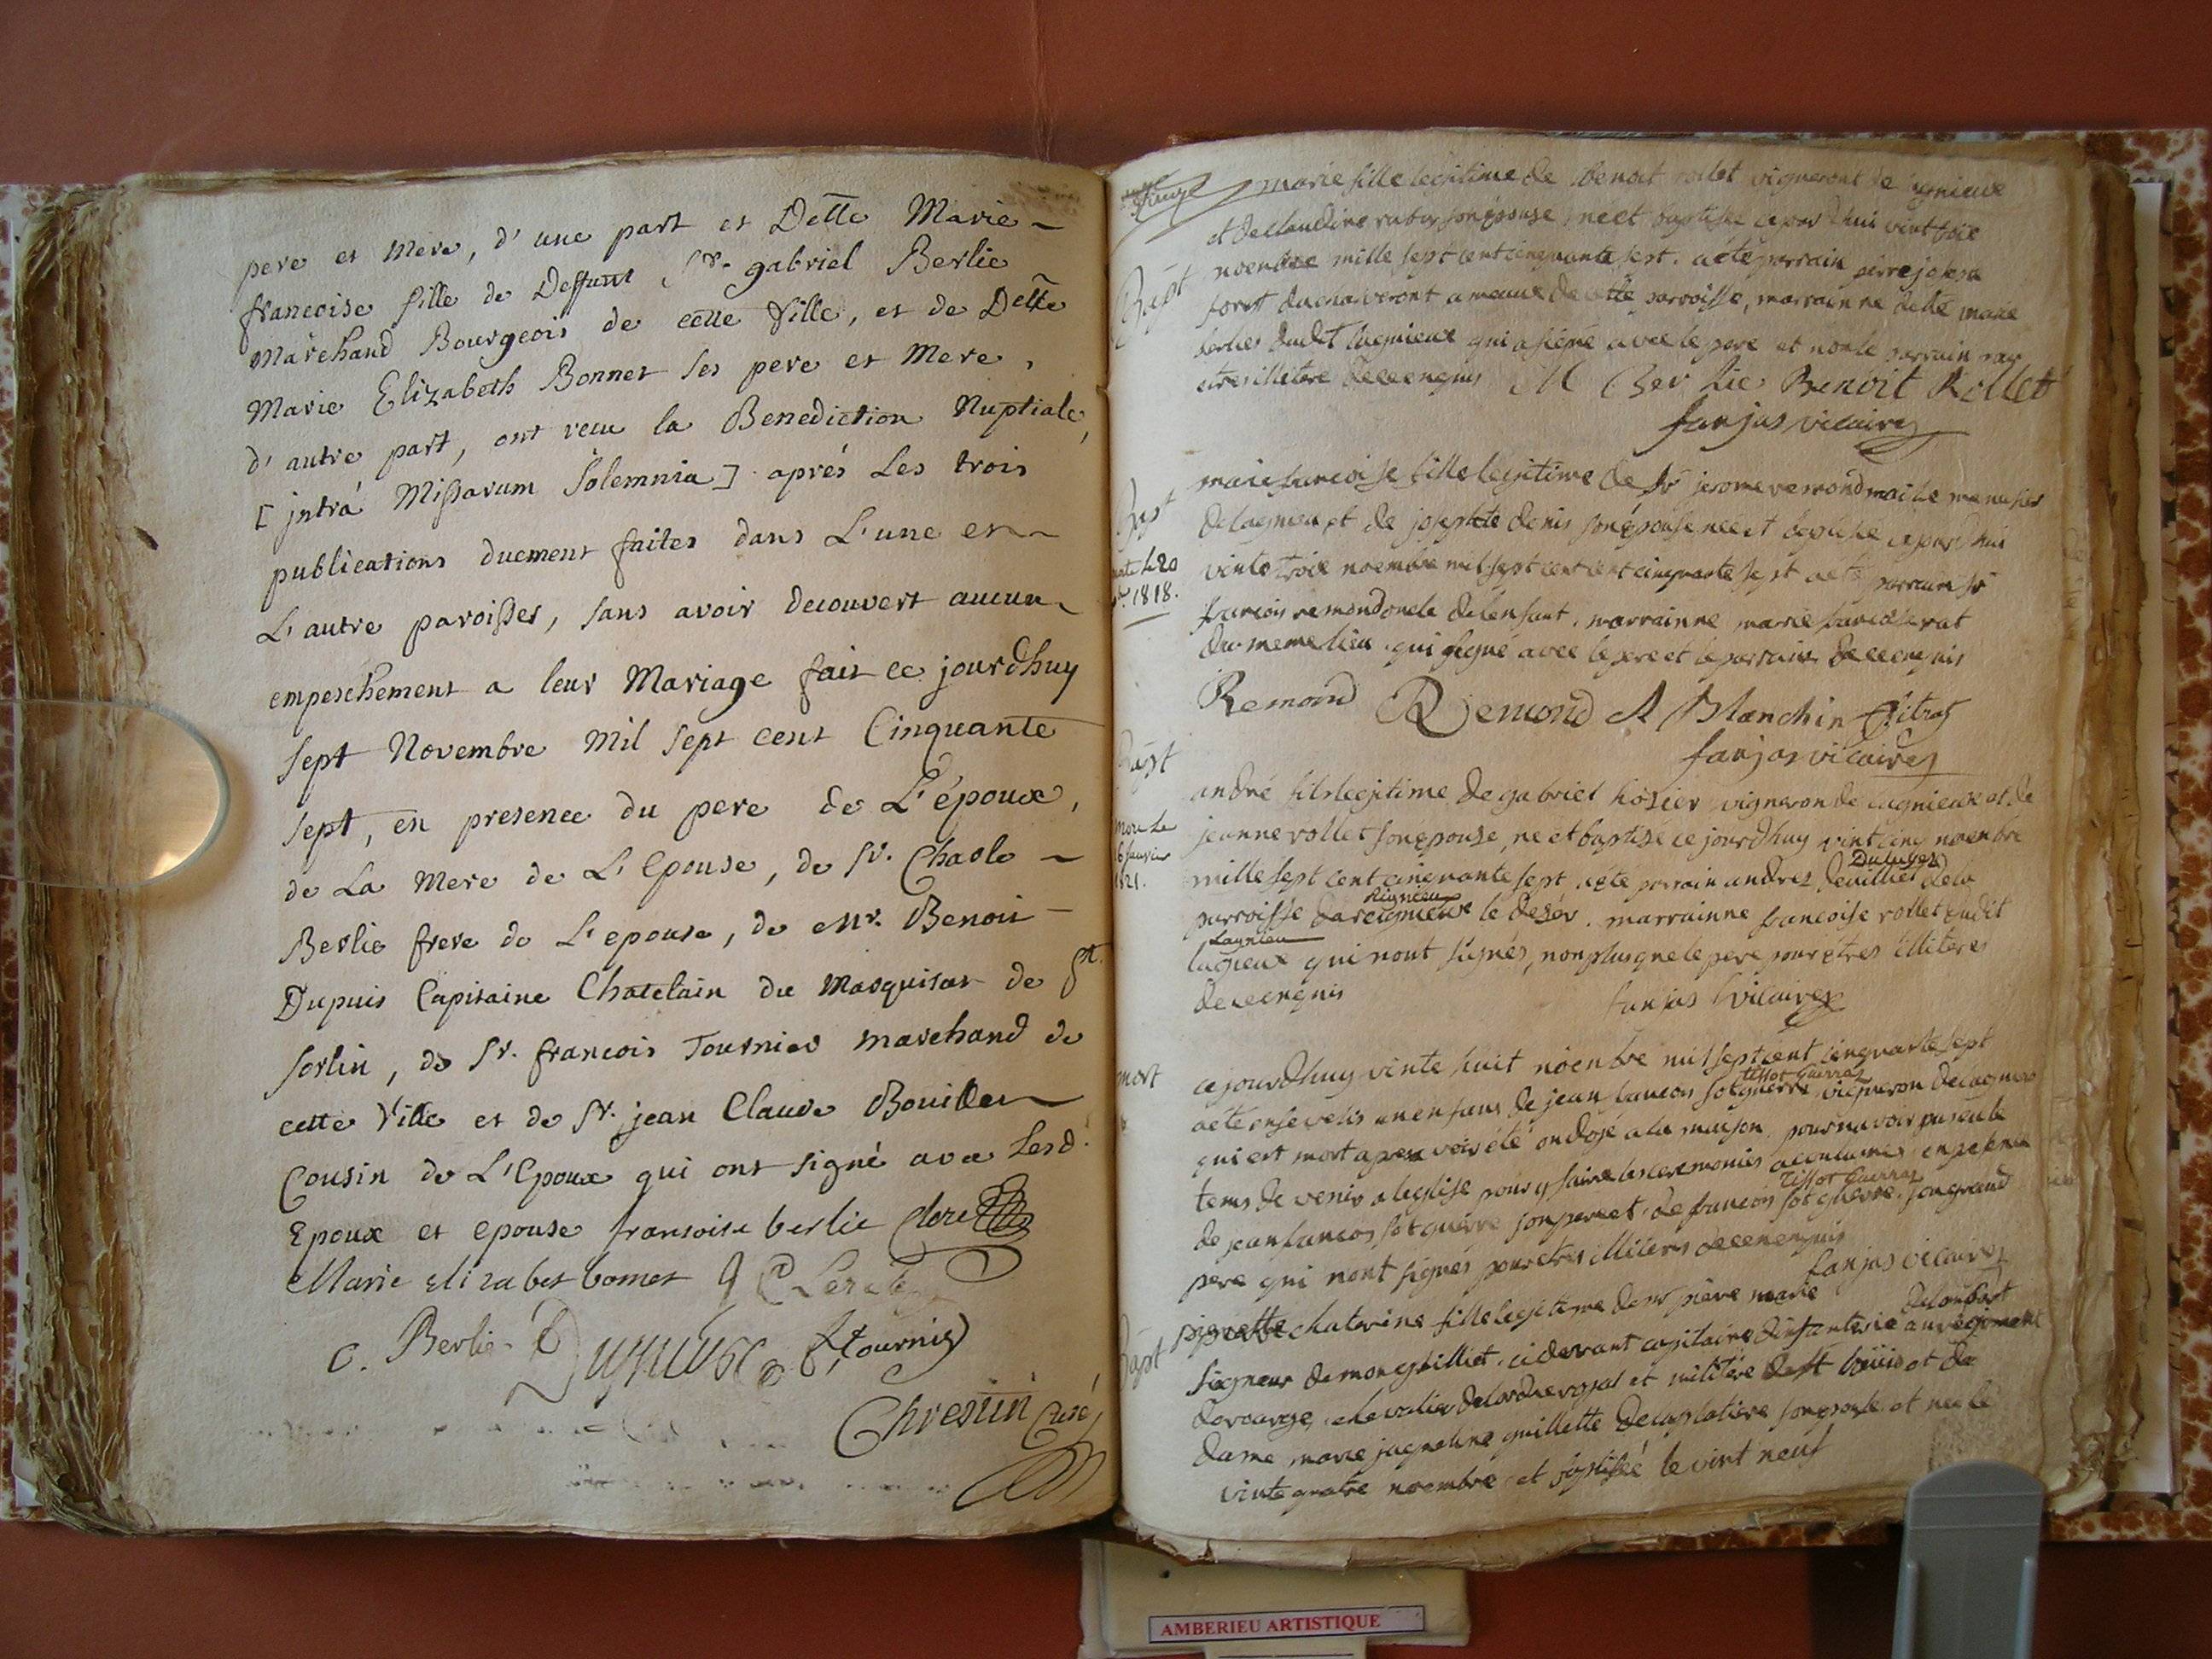 pere et Mere, d'une part et Delle Marie
francoise fille de Deffunt Sr. gabriel Berlie
Marchand Bourgeois de cette Ville, et de Delle
Marie Elizabeth Bonnet ses pere et Mere,
d'autre part, ont recu la Benediction Nuptiale,
[ jntrá Missarum Solemnia ] aprés Les trois
publications duement faites dans L'une et
L'autre paroisses, sans avoir decouvert aucun
empeschement a leur Mariage fait ce jourdhuy
sept Novembre Mil sept cent Cinquante
sept, en presence du pere de L'époux,
de La Mere de L'Epouse, de Sr. Charle
Berlie frere de L'epouse, de Mr. Benoit
Dupuis Capitaine Chatelain du Marquisat de St.
sorlin, de Sr. francois Tournier marchand de
cette Ville et de Sr. jean Claude Bouillet
Cousin de L'Epoux qui ont signé avec Lesd.
Epoux et epouse fransoise berlie
Marie Elizabet bonnet
C. Berlie Dupuis tournier
Chrestin Curé
marie fille legitime de benoit rollet vigneront de lagnieux
et de claudine son épouse, neet baptisée ce jour dhui vint trois
noembre mille sept cent cinquante sept. a été parrain pierre joseph
foret du de cette parroisse, marrainne delle marie
berlies dudit lagnieux qui a signé avec le pere et non le parrain par
etres illitere de ce enquis M Berlie Benoit Rollet
fanjas vicaire
Bapt
marie francoise fille legitime de sr jerome remond maitre menusier
de lagnieu et de josephte denis son épouse nee et baptisée ce jour dhui
vinte trois noembre mil sept cent cinquante sept a été parrain sr
francois remond oncle de lenfant, marrainne marie francoise
du meme lieu qui signé avec le pere et le parrain de ce enquis
Bapt
le 20
1818.
Remond Remond M Blanchin
fanjas vicaire
Bapt
andré fils legitime de gabriel hosier vigneron de lagnieux et de
jeanne rollet son epouse, ne et baptisé ce jour dhuy vint cinq noembre
mille sept cent cinquante sept a été parrain andres de la
parroisse de le deser. marrainne francoise rollet dudit
Lagnieu
lagnieux qui nont signés, non plus que le pere pour étres illiteres
de ce enquis fanjas vicaire
mort le
6 janvier
1821.
mort
ce jourdhuy vinte huit noembre mil sept cent cinquante sept
tissot Guerraz
a été ensevelis un enfans de jean francois sotguerre vigneron de lagnieu
qui est mort apres avoir été ondoié a la maison, pour navoir pas eu le
tems de venir a leglise pour y faire les ceremonies acoutumés en presence
Tissot Guerraz
de jean francois sotguerre son pere et de francois sotguerre son grand
pere qui nont signés pour etres illiteres de ce enquis
fanjas vicaire
Bapt
pierrette chaterine fille legitime de mr piere marie delombart
signeur de montgrilliet, ci devant capitaine dinfanterie au regiment
de rouarge, chevalier de lordre royal et militére de st louis et de
dame marie jaqueline guillette de son epouse et nee le
vinte quatre noembre et baptisée le vint neuf
AMBERIEU ARTISTIQUE